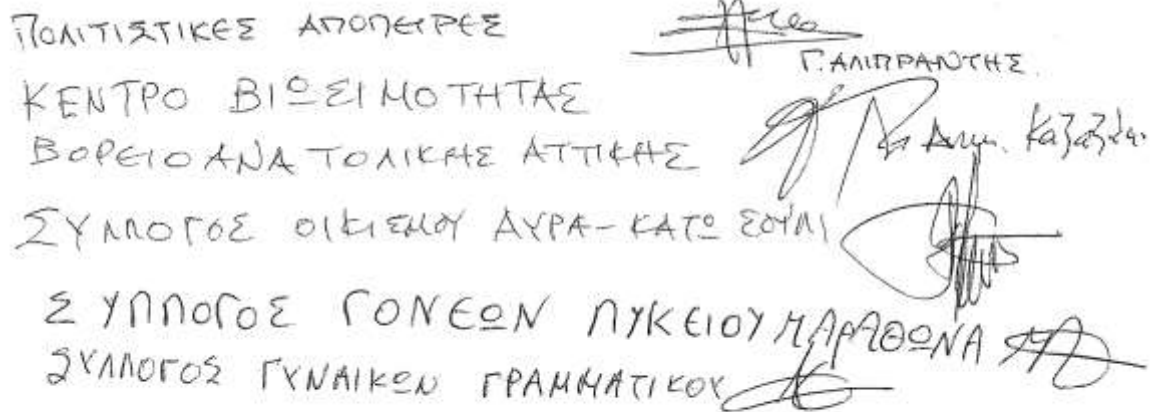 ΠΟΛΙΤΙΣΤΙΚΕΣ ΑΠΟΠΕΙΡΕΣ
Γ. ΑΛΙΠΡΑΝΤΗΣ
ΚΕΝΤΡΟ ΒΙΩΣΙΜΟΤΗΤΑΣ
ΒΟΡΕΙΟΑΝΑΤΟΛΙΚΗΣ ΑΤΤΙΚΗΣ
ΣΥΛΛΟΓΟΣ ΟΙΚΙΣΜΟΥ ΑΥΡΑ-ΚΑΤΩ ΣΟΥΛΙ
ΣΥΛΛΟΓΟΣ ΓΟΝΕΩΝ ΛΥΚΕΙΟΥ ΜΑΡΑΘΩΝΑ
ΣΥΛΛΟΓΟΣ ΓΥΝΑΙΚΩΝ ΓΡΑΜΜΑΤΙΚΟΥ